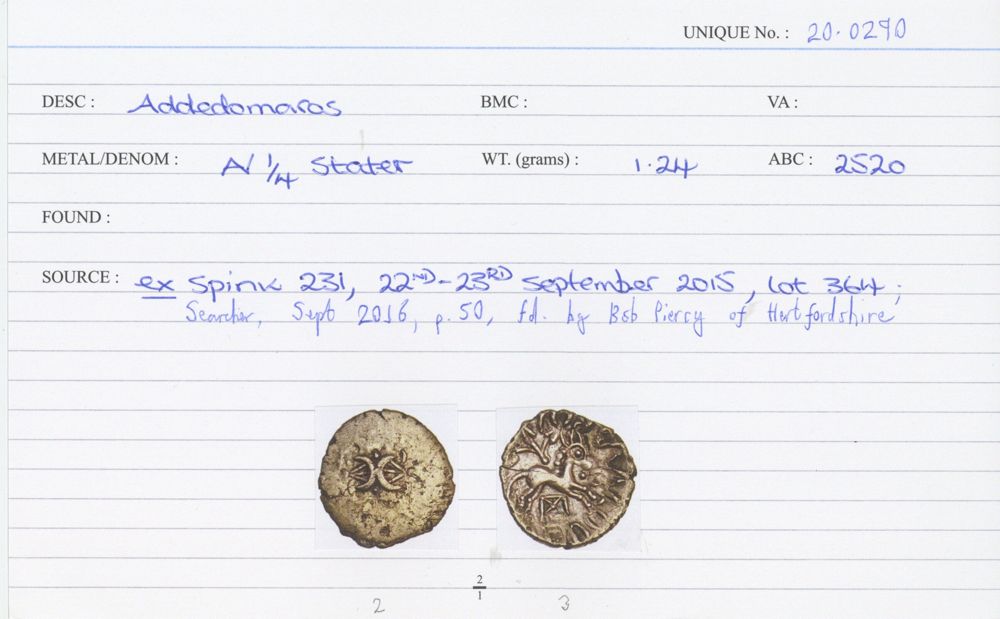 UNIQUE No. : 20.0290
DESC : Addedomaros BMC : VA :
METAL/DENOM : A/ 1/4 Stater WT. (grams) : 1.24 ABC : 2520
FOUND :
SOURCE : ex Spink 231, 22ND-23RD September 2015, lot 364;
Searcher, Sept 2016, p. 50, fd. by Bob Piercy of Hertfordshire
2/1
2 3